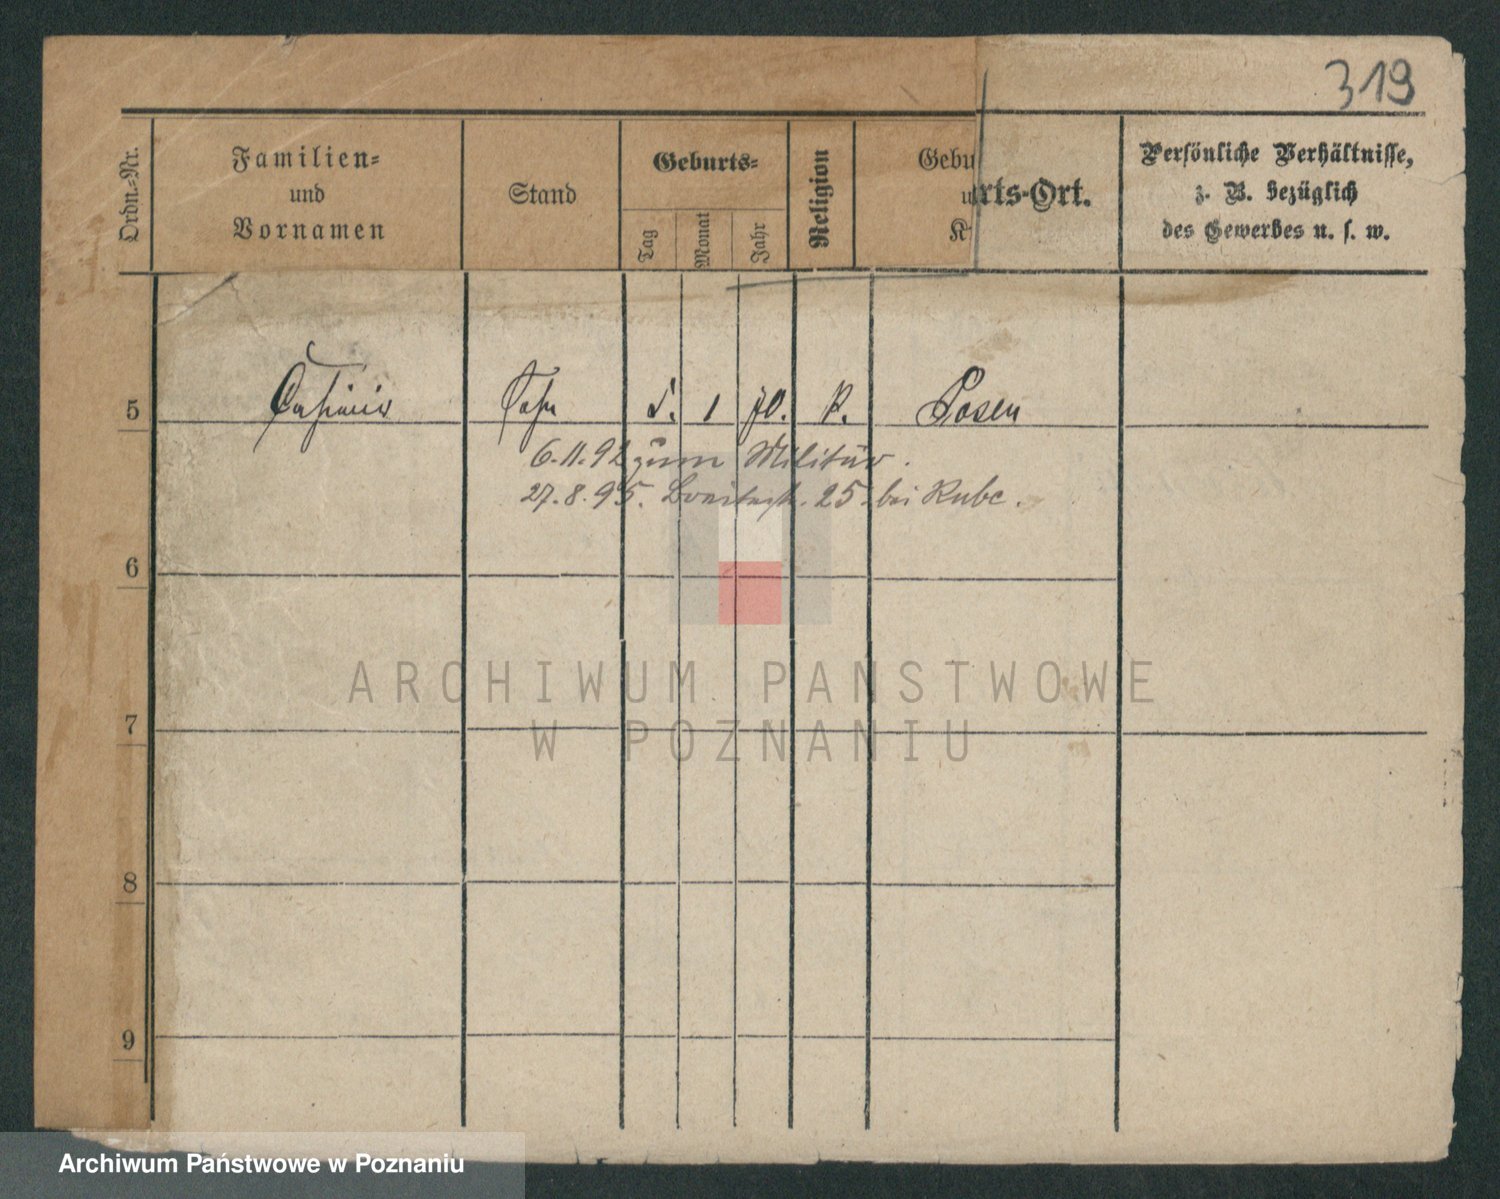 319
Ordn.-Nr.
Familien-
und
Vornamen
Stand
Geburts-
Tag
Monat
Jahr
Religion
Gebu
u
K
rts-Ort.
Persönliche Verhältnisse,
z. B. bezüglich
des Gewerbes u. s. w.
5 Casimir Sohn 5. 1 70. k. Posen
6.11.92 zum Militär.
27.8.95. Breitestr. 25 bei Kube.
6
ARCHIWUM PAŃSTWOWE
W POZNANIU
7
8
9
Archiwum Państwowe w Poznaniu